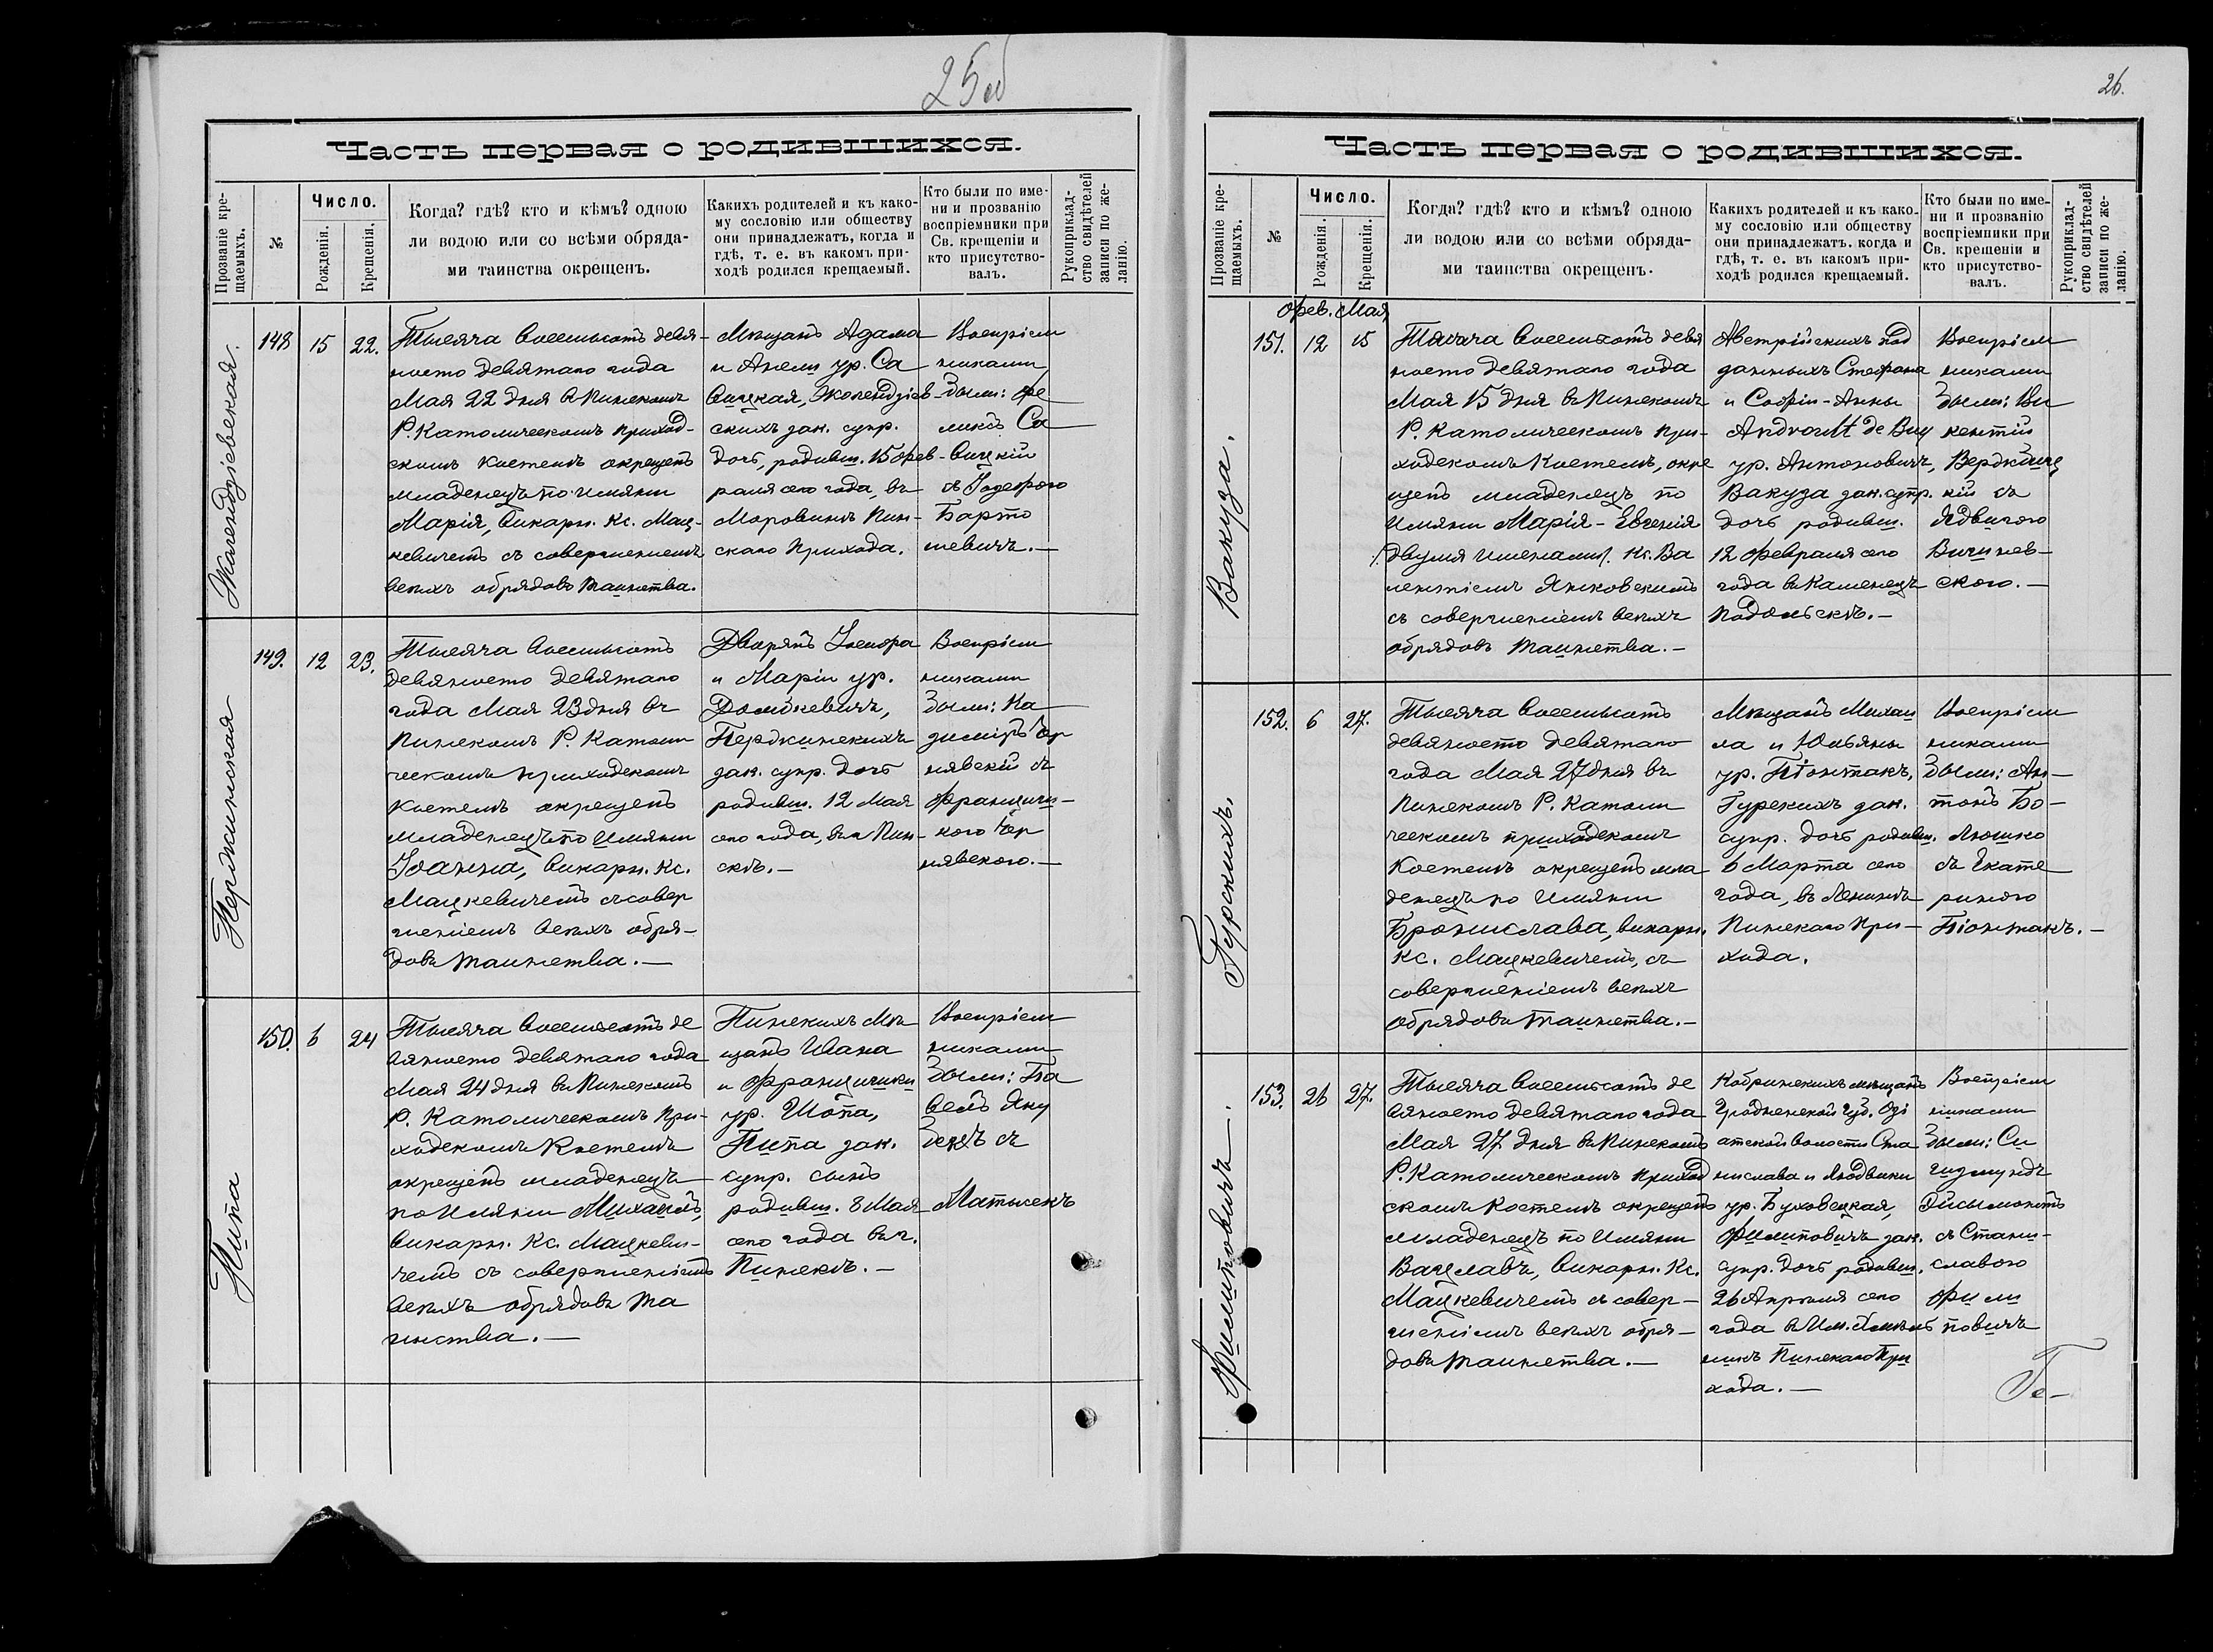 25об
Часть первая о родившихся.
Прозваніе кре-
щаемыхъ.
№
Число.
Рожденія.
Крещенія.
Когда? гдѣ? кто и кѣмъ? одною
ли водою или со всѣми обряда-
ми таинства окрещенъ.
Какихъ родителей и къ како-
му сословію или обществу
они принадлежатъ, когда и
гдѣ, т. е. въ какомъ при-
ходѣ родился крещаемый.
Кто были по име-
ни и прозванію
воспріемники при
Св. крещеніи и
кто присутство-
валъ.
Рукоприклад-
ство свидѣтелей
записи по же-
ланію.
Жолендзіевская.
148
15
22.
Тысяча восемьсотъ девя-
носто девятаго года
Мая 22 дня в Пинскомъ
Р. Католическомъ приход-
скомъ костелѣ окрещенъ
младенецъ по имяни
Марія, викарн. Кс. Мац-
кевичемъ съ совершеніемъ
всѣхъ обрядовъ таинства.
Мѣщанъ Адама
и Анели ур. Са
вицкая, Жолендзіев-
скихъ зак. супр.
дочь, родивш. 15 Фев-
раля сего года, въ
Моровинѣ Пин-
скаго прихода.
Воспріем
никами
были: Фе
ликсъ Са
вицкій
съ Іозефою
Барто
шевичъ.—
Пержинская
149.
12
23.
Тысяча восемьсотъ
девяносто девятаго
года Мая 23 дня въ
Пинскомъ Р. Католи
ческомъ приходскомъ
костелѣ окрещенъ
младенецъ по имяни
Іоанна, викарн. Кс.
Мацкевичемъ съ совер
шеніемъ всѣхъ обря-
довъ таинства.—
Дворянъ Іосифа
и Маріи ур.
Домбкевичъ,
Пержинскихъ
зак. супр. дочь
родивш. 12 Мая
сего года, въ г. Пин-
скѣ.—
Воспріем
никами
были: Ка
зиміръ Чер
нявскій съ
Францишк-
кою Чер
нявскою.—
Пипа
150.
6
24
Тысяча восемьсотъ де
вяносто девятаго года
Мая 24 дня въ Пинскомъ
Р. Католическомъ при-
ходскомъ Костелѣ
окрещенъ младенецъ
по имяни Михаилъ,
викарн. Кс. Мацкеви-
чемъ съ совершеніемъ
всѣхъ обрядовъ та
инства.—
Пинскихъ Мѣ
щанъ Ивана
и Францишки
ур. Шопа,
Пипа зак.
супр. сынъ
родивш. 8 Мая
сего года въ г.
Пинскѣ.—
Воспріем
никами
были: Па
велъ Яку
бекъ съ
Матысекъ
26.
Часть первая о родившихся.
Прозваніе кре-
щаемыхъ.
№
Число.
Рожденія.
Крещенія.
Когда? гдѣ? кто и кѣмъ? одною
ли водою или со всѣми обряда-
ми таинства окрещенъ.
Какихъ родителей и къ како-
му сословію или обществу
они принадлежатъ. когда и
гдѣ, т. е. въ какомъ при-
ходѣ родился крещаемый.
Кто были по име-
ни и прозванію
воспріемники при
Св. крещеніи и
кто присутство-
валъ.
Рукоприклад-
ство свидѣтелей
записи по же-
ланію.
Фев. Мая
Вакуза.
151.
12
15
Тысяча восемьсотъ девя
носто девятаго года
Мая 15 дня въ Пинскомъ
Р. Католическомъ при-
ходскомъ Костелѣ, окре
щенъ младенецъ по
имяни Марія-Евгенія
/двумя именами/. Кс. Ва
лентіемъ Янковскимъ
съ совершеніемъ всѣхъ
обрядовъ таинства.—
Австрійскихъ под
данныхъ Стефана
и Софіи-Анны
Androult de Buy
ур. Антоновичъ,
Вакуза зак. супр.
дочь родивш.
12 Февраля сего
года въ Каменецъ
Подольскѣ.—
Воспріем
никами
были: Ви
кентій
Вержбиц
кій съ
Ядвигою
Вичинев-
скою.—
Гурскихъ
152.
6
27.
Тысяча восемьсотъ
девяносто девятаго
года Мая 27 дня въ
Пинскомъ Р. Католи
ческомъ приходскомъ
Костелѣ окрещенъ мла
денецъ по имяни
Бронислава, викарн.
Кс. Мацкевичемъ, съ
совершеніемъ всѣхъ
обрядовъ таинства.—
Мѣщанъ Михаи
ла и Юльяны
ур. Піонтакъ,
Гурскихъ зак.
супр. дочь родивш.
6 Марта сего
года, въ Ленинѣ
Пинскаго при-
хода.
Воспріем
никами
были: Ан-
тонъ Бо-
люшко
съ Екате
риною
Піонтакъ.—
Филиповичъ.
153.
26
27.
Тысяча восемьсотъ де
вяносто девятаго года
Мая 27 дня въ Пинскомъ
Р. Католическомъ приход
скомъ костелѣ окрещенъ
младенецъ по имяни
Вацлавъ, викарн. Кс.
Мацкевичемъ съ совер-
шеніемъ всѣхъ обря-
довъ таинства.—
Кобринскихъ мѣщанъ
Гродненской губ. Озі
атской волости Ста
нислава и Людвики
ур. Буховецкая,
Филиповичъ зак.
супр. дочь родивш.
26 Апрѣля сего
года в Им.
Пинскаго при
хода.—
Воспріем
никами
были: Си
гизмундъ
Дысымонтъ
съ Стани-
славою
Фили
повичъ